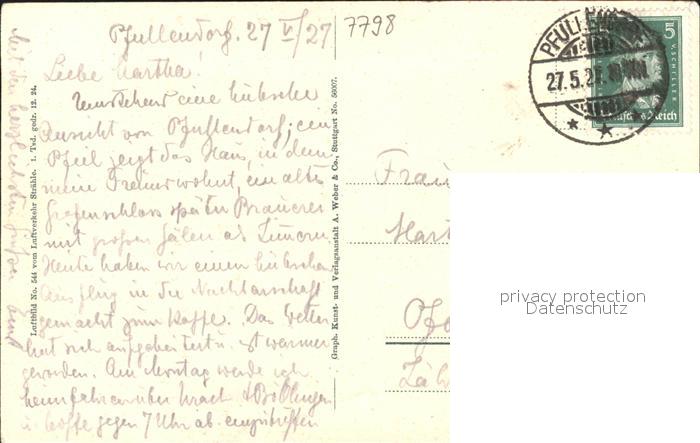 Pfullendorf. 27 V/27
7798
Liebe Martha!
Umstehend eine hübsche
Ansicht von Pfullendorf; ein
Pfeil zeigt das Haus, in dem
meine Freundin wohnt, ein altes
Grafenschloss später Brauerei
mit großen Sälen als Zimmern
Heute haben wir einen hübschen
Ausflug in die Nachbarschaft
gemacht zum Kaffe. Das Wetter
hat sich aufgeheitert u. ist warmer
geworden. Am Montag werde ich
heimfahren über Urach &Böblingen
u. hoffe gegen 7 Uhr ab. einzutreffen
Mit den herzlichsten Grüßen
Luftbild No. 544 vom Luftverkehr Strähle. 1. Tsd. gedr. 12. 24.
Graph. Kunst- und Verlagsanstalt A. Weber & Co., Stuttgart No. 56007.
PFULLENDORF
27.5.27
5
V. SCHILLER
Deutsches Reich
Frau
privacy protection
Datenschutz